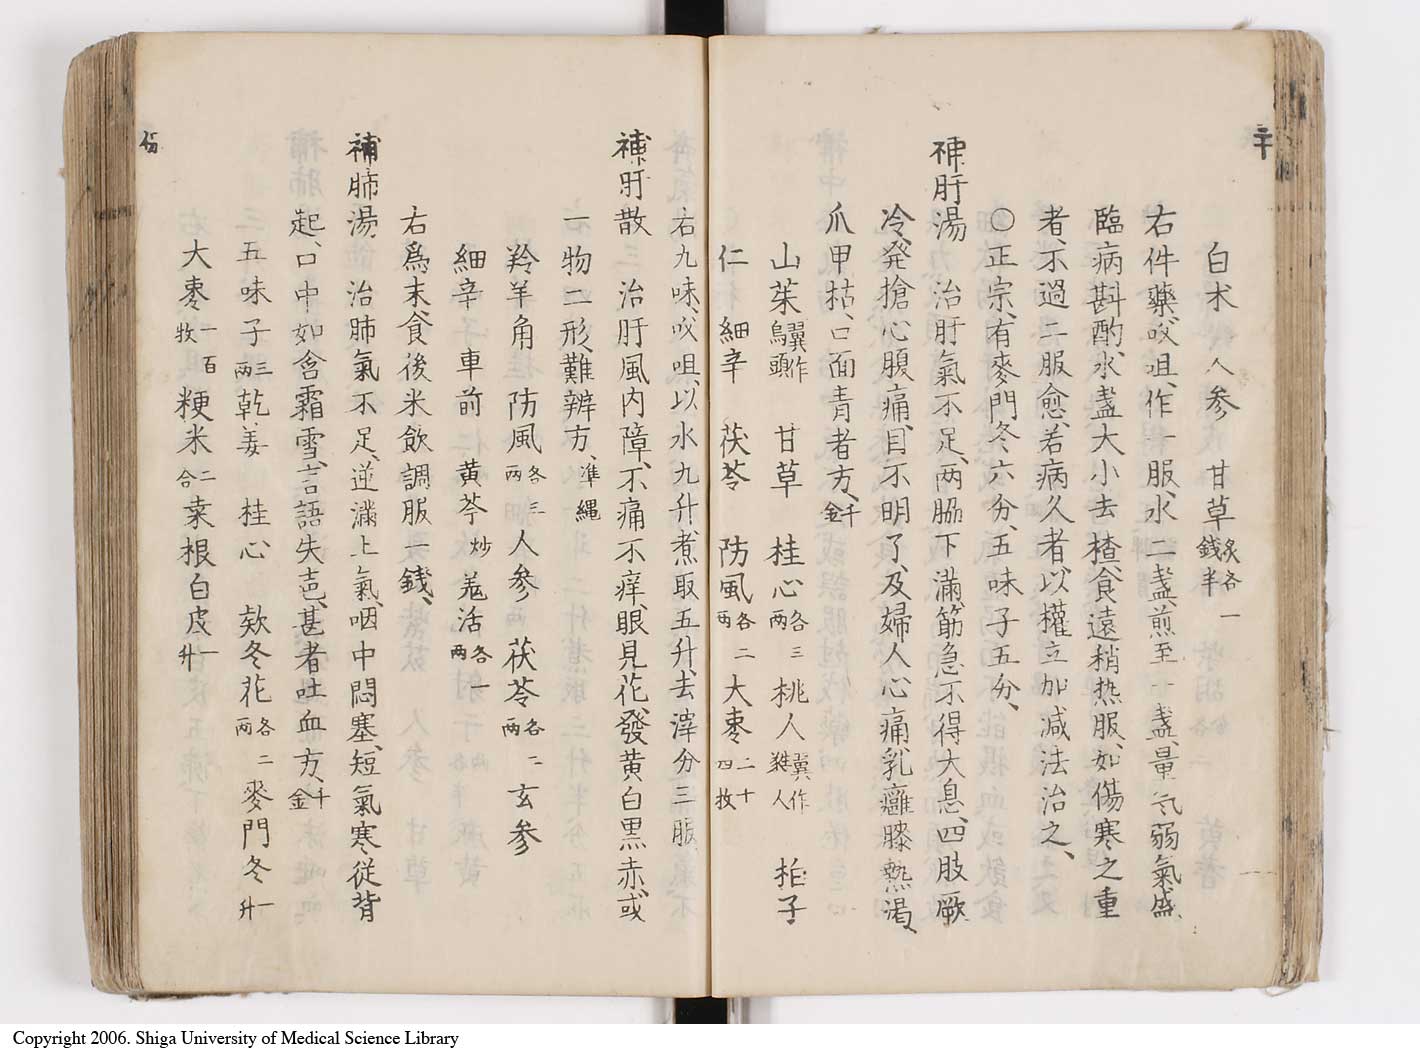 三十
白朮　人参　甘草炙各一錢半
右件藥㕮咀、作一服、水二盞、煎至一盞、量气弱氣盛
臨病斟酌、水盞大小去楂、食遠稍热服、如傷寒之重
者、不過二服愈、若病久者、以權立加减法治之、
○正宗、有麥門冬六分、五味子五分、
補肝湯　治肝氣不足、两脇下滿、筋急不得大息、四肢厥
冷、発搶心腹痛、目不明了、及婦人心痛、乳癰膝热渇、
爪甲枯、口面青者方、千金
山茱翼作烏頭　甘草　桂心各三两　桃人翼作㹸人　栢子
仁　細辛　茯苓　防風各二两　大棗二十四枚
右九味、㕮咀、以水九升、煮取五升、去滓分三服、
補肝散　治肝風内障、不痛不痒、眼見花、發黄白黒赤、或
一物二形、難辨方、準繩
羚羊角　防風各三两　人参　茯苓各二两　玄参
細辛　車前　黄芩炒　羗活各一两
右爲末、食後米飲調服一錢、
補肺湯　治肺氣不足、逆滿上氣、咽中悶塞、短氣寒従背
起、口中如含霜雪、言語失声、甚者吐血方、千金
五味子三两　乾姜　桂心　欵冬花各二两　麥門冬一升
大棗一百枚　粳米二合　桒根白皮一升
Copyright 2006. Shiga University of Medical Science Library